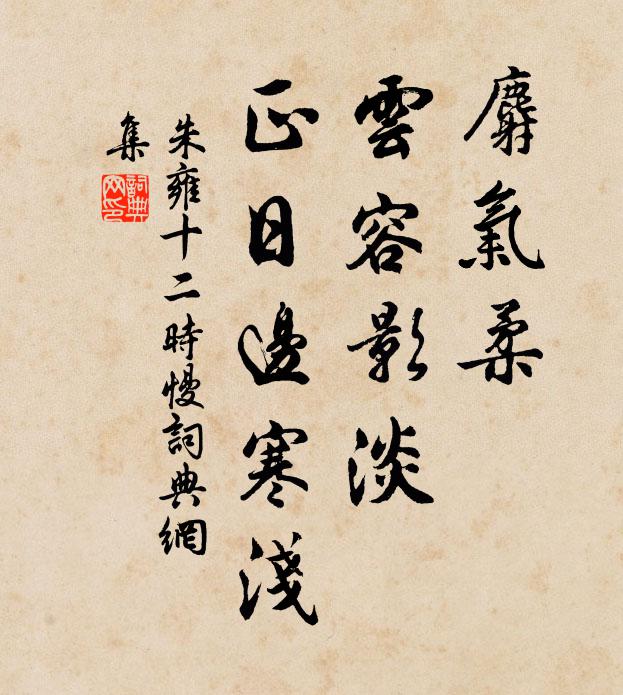 麝氣柔
雲容影淡
正日邊寒淺
朱雍十二時慢詞典網
集
詞典
网印